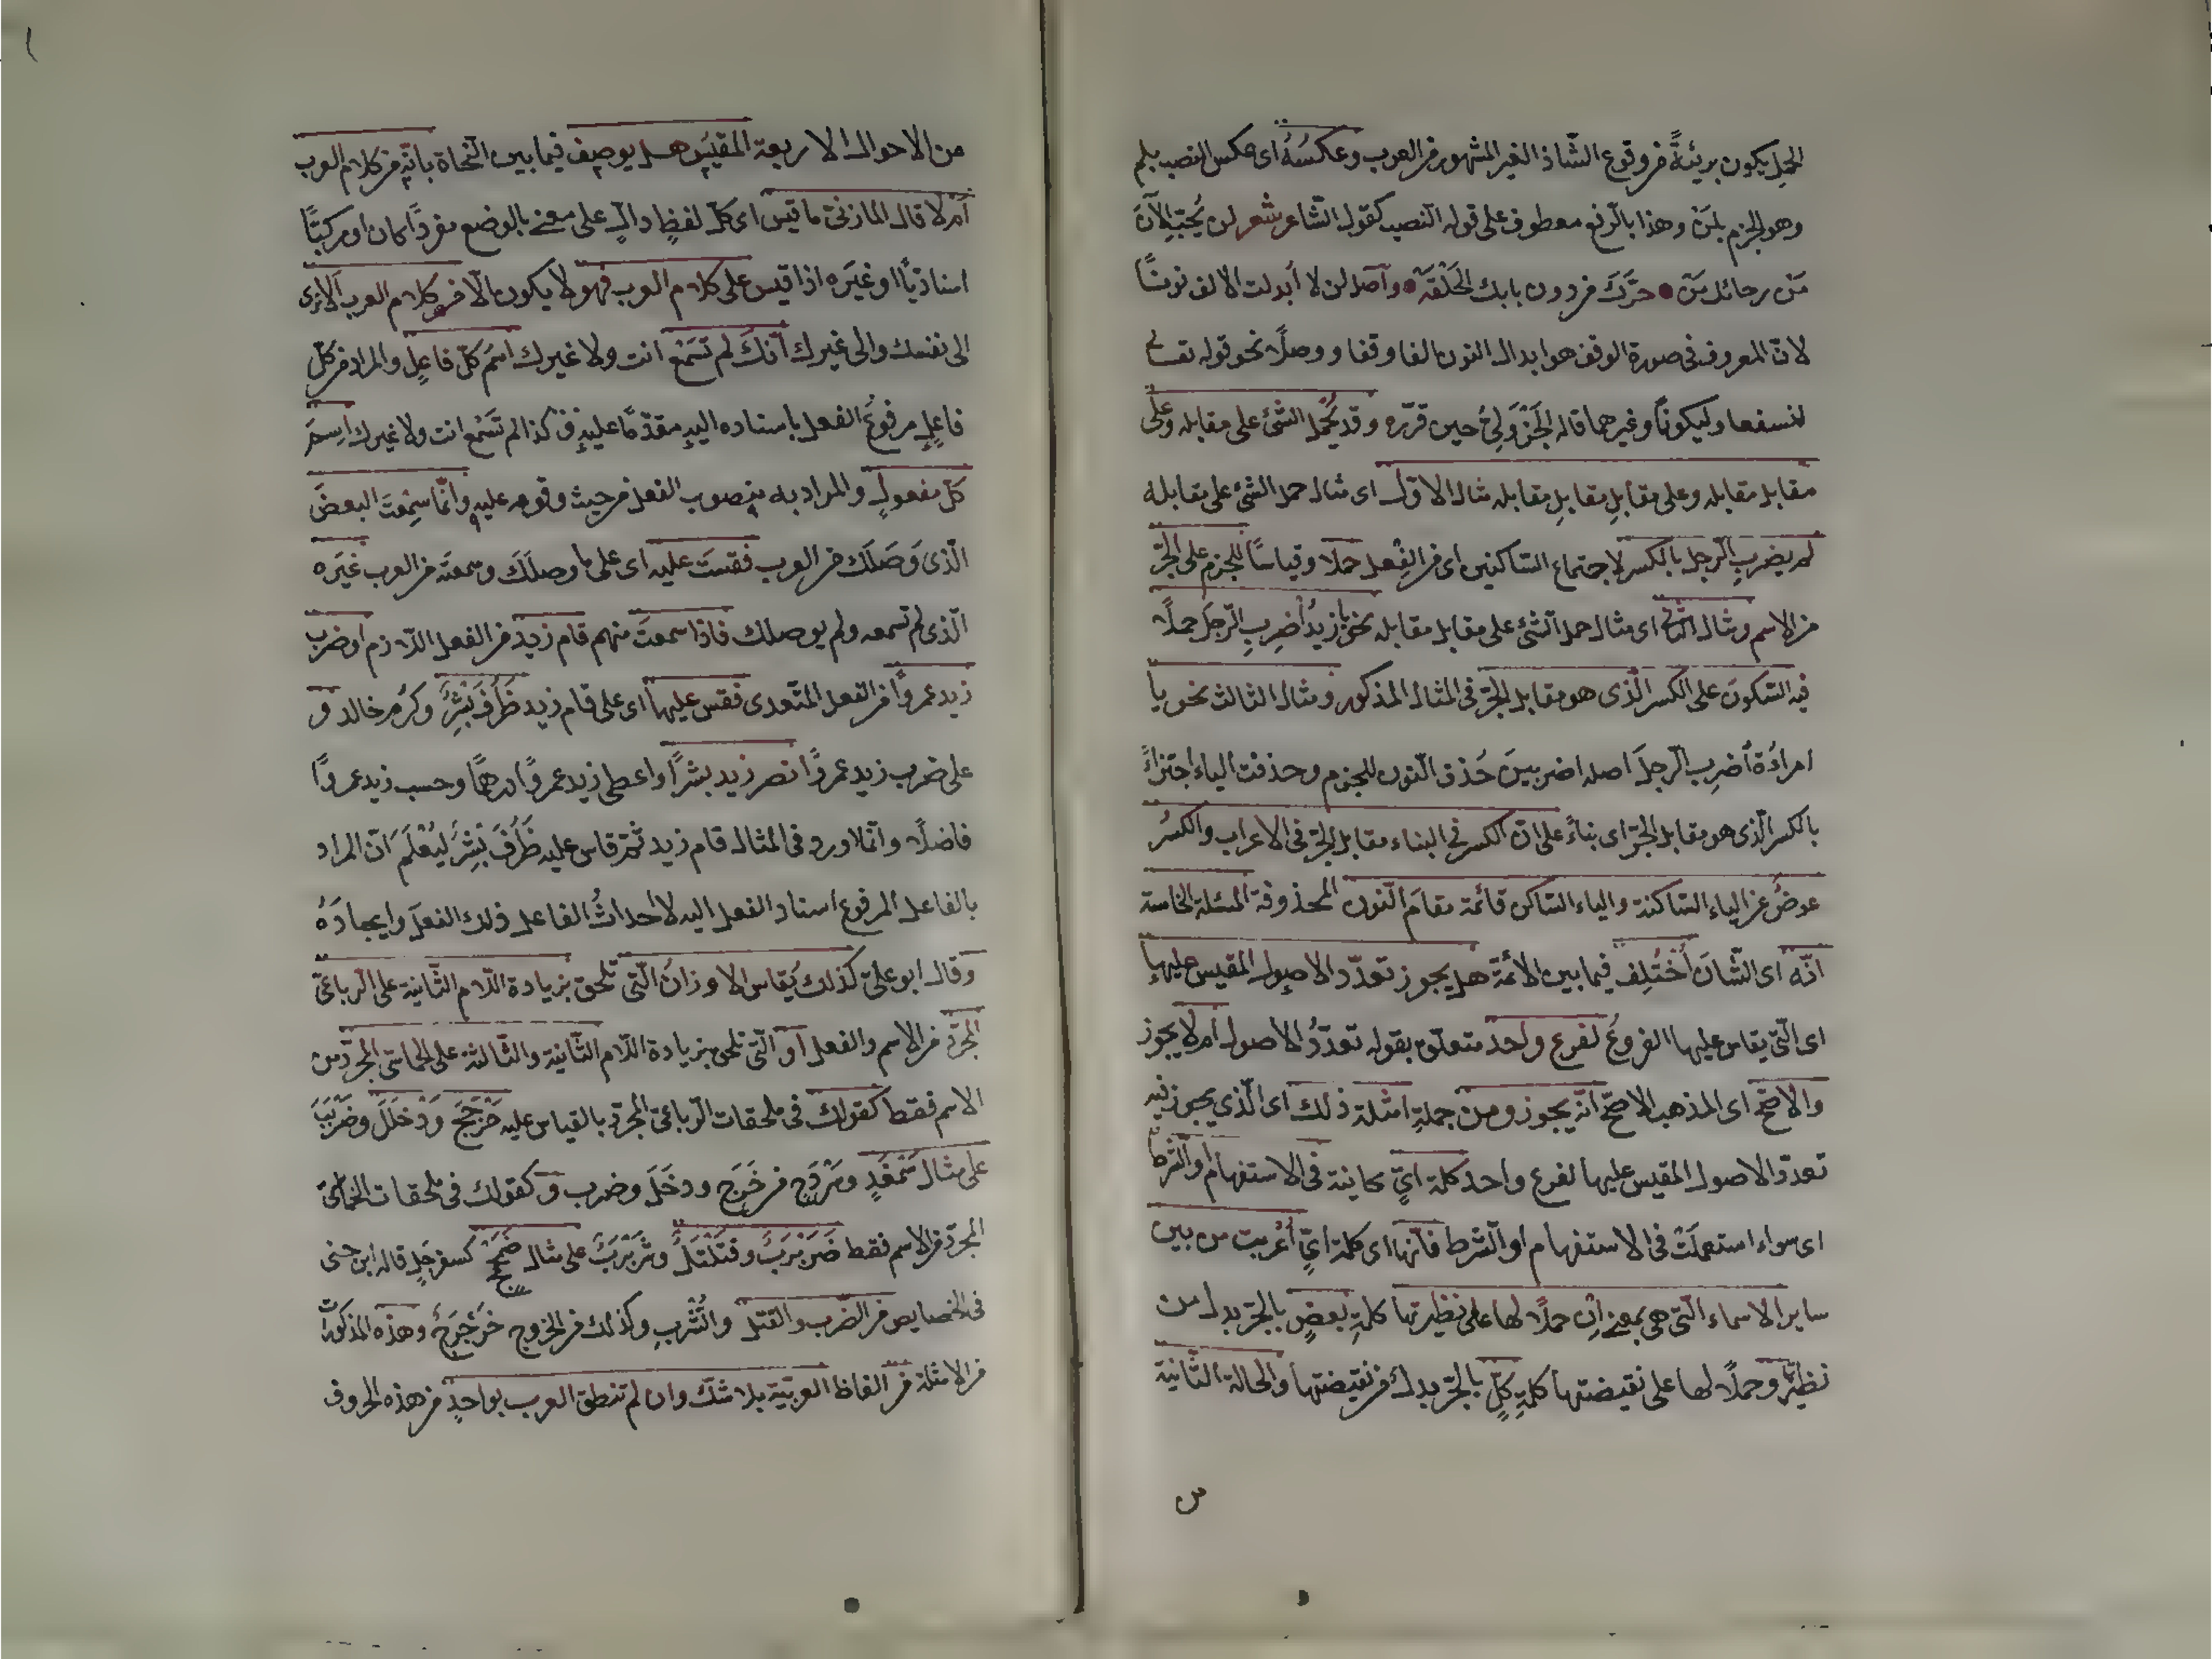 الحمل يكون بريئةً من وقوع الشّاذ الغير المشهور من العرب وعكسُهُ اى عكس النصب بلم
وهو الجزم بلَنْ وهذا بالرّفع معطوف على قوله النصب كقول الشّاعر شعر لن يُخب الآنَ
مَن رجائك مَن ● حرَّكَ من دون بابك الحَلَقَة ● وآصل لن لا أبدلت الالف نونًا
لانّ المعروف فى صورة الوقف هو ابدال النون الفا وقفا ووصلًا نحو قوله تعالى
لنسفعا وليكونًا وغيرهما قاله الجَزْوَلِىُّ حين قرّره وقد يُحْمل الشّئ على مقابله وعلى
مقابل مقابله وعلى مقابلِ مقابلِ مقابله مثال الاوّل اى مثال حمل الشئ على مقابله
لم يضربِ الرّجل بالكسر لاجتماع السّاكنين اى من الفِعل حملا وقياسًا للجزم على الجرّ
من الاسم ومثال الثّانى اى مثال حمل الشّئ على مقابل مقابله نحو يا زيدُ اضربِ الرّجلَ حملًا
فيه السّكونَ على الكسر الّذى هو مقابل الجرّ فى المثال المذكور ومثال الثالث نحو يا
امراةُ اضرِبِ الرّجلَ اصله اضربينَ حُذف النّون للجزم وحذفت الياء اجتزاءً
بالكسر الّذى هو مقابل الجرّ اى بناءً على انّ الكسر فى البناء مقابل الجرّ فى الاعراب والكسرُ
عوضُ عن الياء السّاكنة والياء السّاكن قائمة مقامَ النّون المحذوفة المسئلة الخامسة
انّه اى الشّانَ اُخْتُلِف فيما بين الائمّة هل يجوز تعدّد الاصول المقيس عليها
اى الّتى يقاس عليها الفروعُ لفرع واحد متعلّق بقوله تعدّدُ الاصول ام لا يجوز
والاصحّ اى المذهب الاصحّ انّه يجوز ومن جملةِ امثلة ذلك اى الّذي يجوز فيه
تعدّد الاصول المقيس عليها لفرع واحد كلمة اىٍّ كاينة فى الاستفهام او الشّرط
اى سواء استعملَتْ فى الاستفهام او الشّرط فانّها اى كلمة اىٍّ أُعْربت من بين
ساير الاسماء الّتى هى بمعنى اِن حملًا لها على نظيرتها كلمةِ بعضٍ بالجرّ بدل من
نظيرتها وحملًا لها على نقيضتها كلمةِ كلٍّ بالجرّ بدل من نقيضتها والحالة الثّانية
س
من الاحوال الاربعة المقيس هل يوصف فيما بين النّحاة بانّه من كلام العرب
أمْ لا قال المازنىّ ما قيس اى كلّ لفظٍ دالّ على معنى بالوضع مفردًا كان او مركبًا
اسناديًّا او غيرَه اذا قيس على كلام العرب فهو لا يكون الّا من كلام العرب الا ترى
الى نفسك والى غيرك أنّكَ لم تَسْمَعْ انت ولا غيرك اسمَ كلّ فاعِلٍ والمراد من كلّ
فاعِلٍ مرفوعُ الفعل باسناده اليهِ مقدّمًا عليهِ وكذا لم تَسْمع انت ولا غيرك اسمَ
كلّ مفعولٍ والمراد به منصوب الفعل من حيث وقوعه عليه وانّما سَمِعْتَ البعضَ
الّذى وَصَلَكَ من العرب فقستَ عليه اى على ما وصلَكَ وسمعتَه من العرب غيَره
الّذى لم تسمعه ولم يوصلك فاذا سمعتَ منهم قام زيد من الفعل اللّازم او ضرب
زيد عمروًا من الفعل المتعدى فقس عليها اى على قام زيد ظَرُفَ بِشْرٌ وكرُم خالد و
على ضرب زيد عمروًا نصر زيد بشرًا واعطى زيد عمروًا درهمًا وحسب زيد عمروًا
فاضلًا وانّما اورد فى المثال قام زيد ثمّ قاس عليه ظَرُفَ بِشْرٌ لِيُعْلَمَ انّ المراد
بالفاعل المرفوع اسناد الفعل اليه لا احداثُ الفاعل ذلك الفعلَ وايجادَهُ
وقال ابو علىّ كذلك يُقاس الاوزانُ الّتى تلحق بزيادة اللّام الثّانية على الرّباعىّ
المجرّد من الاسم والفعل او الّتى تلحق بزيادة اللّام الثّانية والثّالثة على الخماسىّ المجرّد من
الاسم فقط كقولك فى ملحقات الرّباعىّ المجرّد بالقياس عليه خَرْجَجَ ودَخْلَلَ وضَرْبَبَ
على مثال سَمْغَدٍ ومَرْدَجٍ من خَرَج ودخَلَ وضرب و كقولك فى ملحقات الخماسىّ
المجرّد من الاسم فقط ضَرَبْرَبٌ وقَتَلْتَلٌ وشَرَبْرَبٌ على مثال كسفرجَلٍ قاله ابن جنى
فى الخصايص من الضّرب والقتل والشّربِ وكذلك من الخروج خَرَجْرَجٌ وهذه المذكورات
من الامثلة من الفاظ العربيّة بلا شكّ وان لم تنطق العرب بواحدٍ من هذه الحروف